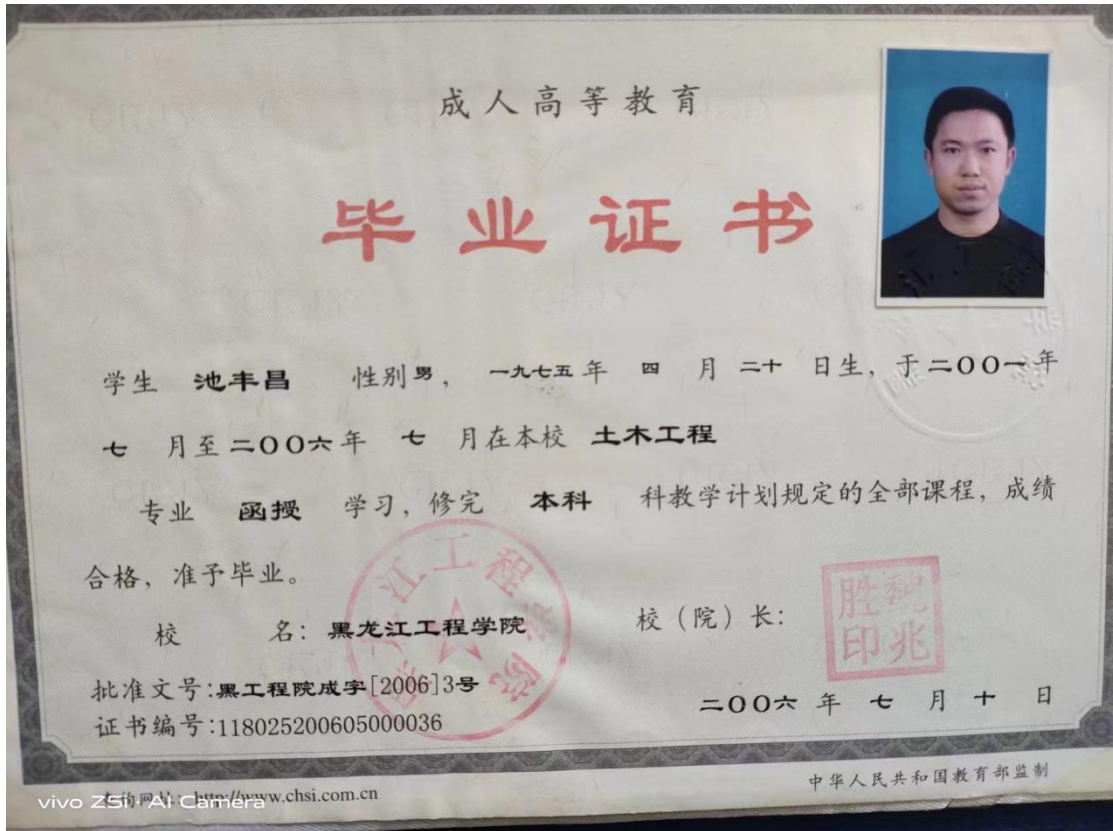 成人高等教育
毕业证书
学生 池丰昌 性别男, 一九七五年 四 月 二十 日生, 于二〇〇一年
七 月至二〇〇六年 七 月在本校 土木工程
专业 函授 学习, 修完 本科 科教学计划规定的全部课程, 成绩
合格, 准予毕业。
校 名: 黑龙江工程学院
校（院）长:
魏兆胜印
批准文号:黑工程院成字[2006]3号
证书编号:118025200605000036
二〇〇六 年 七 月 十 日
黑龙江工程学院
中华人民共和国教育部监制
查询网址: http://www.chsi.com.cn
vivo Z5i · AI Camera